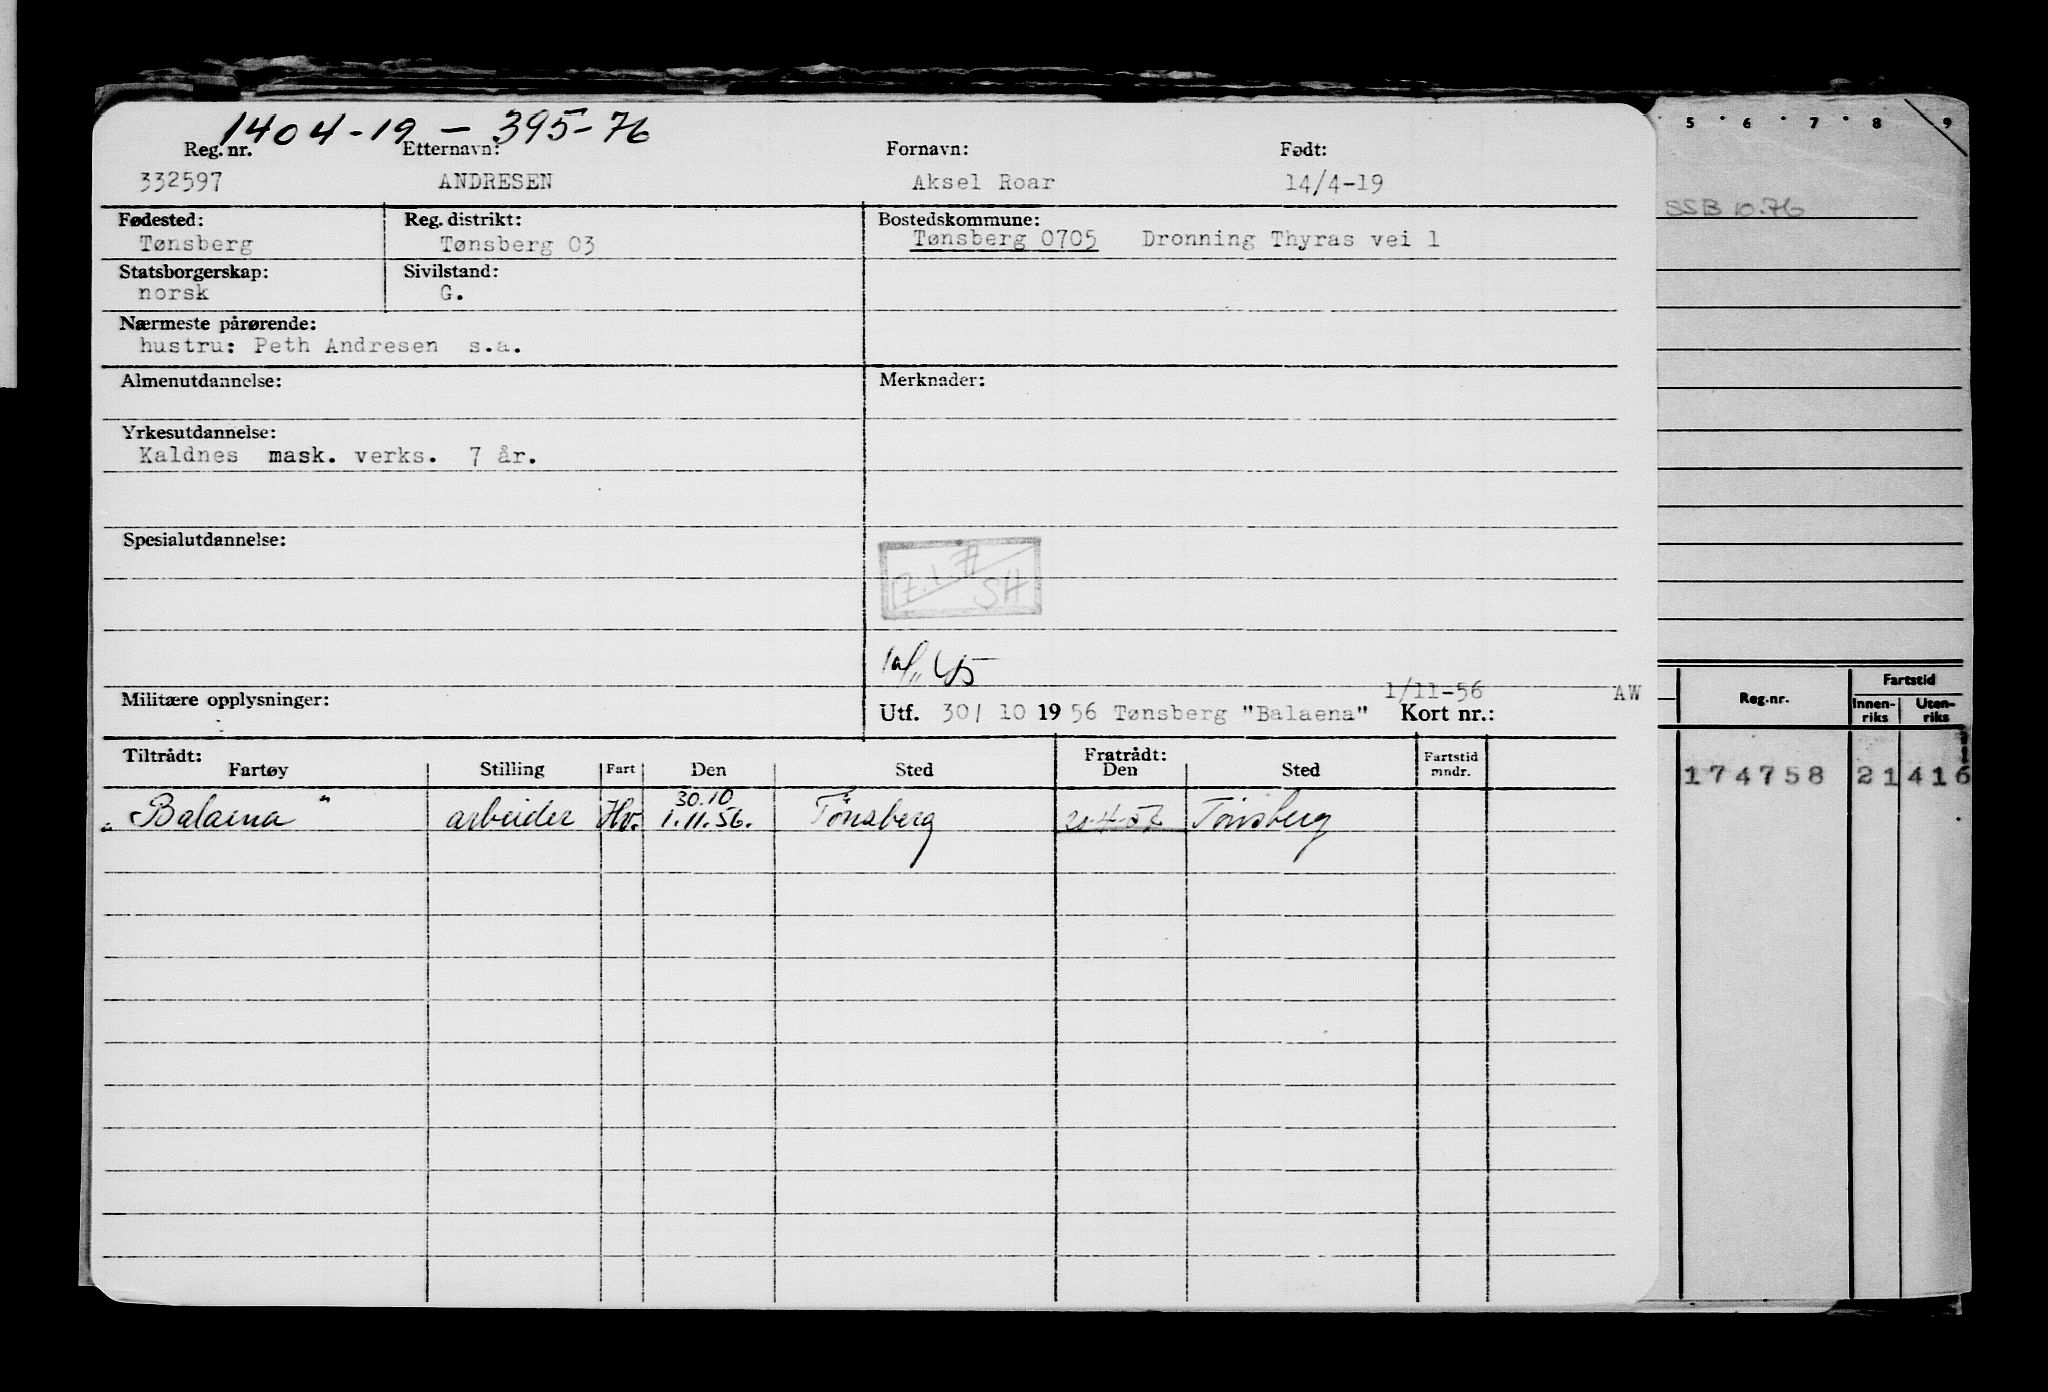 1404-19 - 395-76
Reg. nr. Etternavn: Fornavn: Født:
332597 ANDRESEN Aksel Roar 14/4-19
Fødested: Reg. distrikt: Bostedskommune:
Tønsberg Tønsberg 03 Tønsberg 0705 Dronning Thyras vei 1
Statsborgerskap: Sivilstand:
norsk G.
Nærmeste pårørende:
hustru: Peth Andresen s.a.
Almenutdannelse: Merknader:
Yrkesutdannelse:
Kaldnes mask. verks. 7 år.
Spesialutdannelse:
SH
Militære opplysninger:
1/11-56 AW
Utf. 30/ 10 1956 Tønsberg "Balaena" Kort nr.:
Tiltrådt: Fratrådt:
Fartøy Stilling Fart Den Sted Den Sted Fartstid mndr.
30.10
"Balaena" arbeider Hv. 1.11.56. Tønsberg Tønsberg
5 6 7 8 9
SSB 10.76
Reg.nr. Fartstid
Innen-riks Uten-riks
174758 21 416